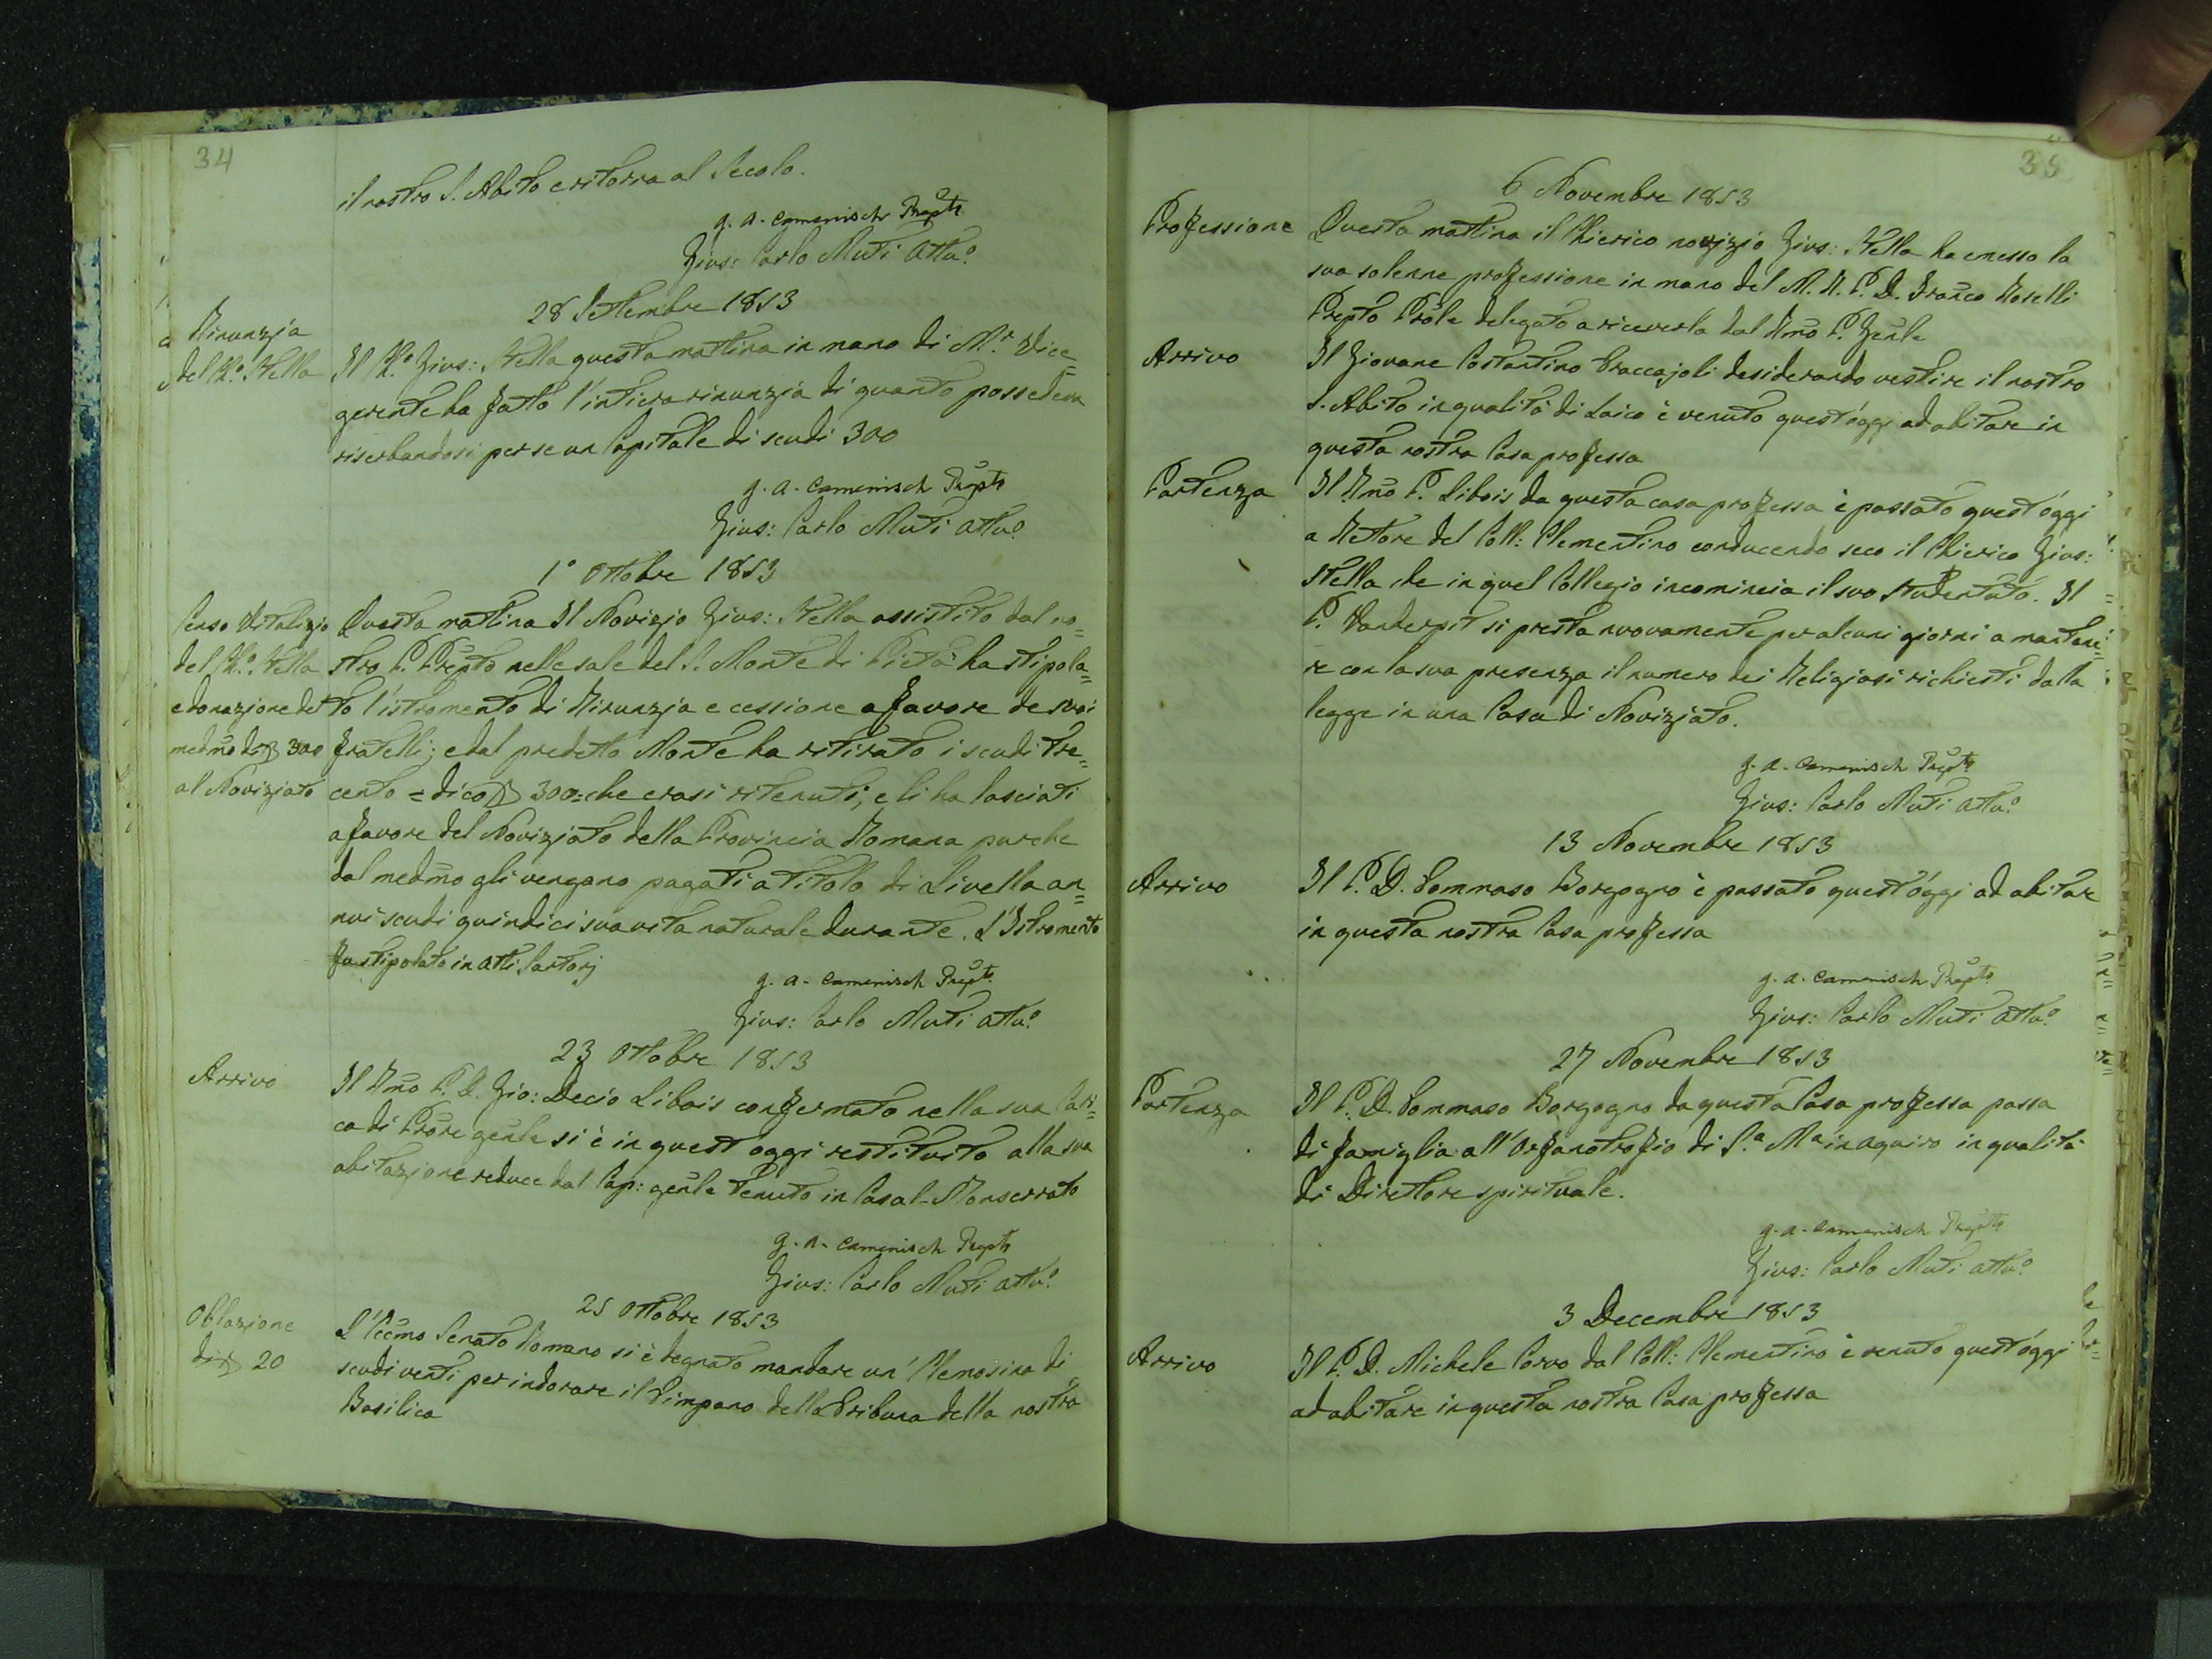 34
il nostro S. Abito e ritorna al Secolo.
g. a. Camenisch Prepto
Gius: Carlo Muti Attuo
28 Settembre 1853
Rinunzia
del Cho. Stella
Il Cho. Gius: Stella questa mattina in mano di Mr. Vice=
gerente ha fatto l'intiera rinunzia di quanto possedeva
riserbandosi per se un Capitale di scudi 300
g. a. Camenisch Prepto
Gius: Carlo Muti attuo
1° Ottobre 1853
Censo Vitalizio
del Cho. Stella
e donazione del
medmo di 300
al Noviziato
Questa mattina Il Novizio Gius: Stella assistito dal no=
stro P. Prepto nelle sale del S. Monte di Pietà ha stipola=
to l'istromento di Rinunzia e cessione a favore de suoi
fratelli; e dal predetto Monte ha ritirato i scudi tre=
cento = dico 300= che erasi ritenuti, e li ha lasciati
a favore del Noviziato della Provincia Romana purche
dal medmo gli vengano pagati a titolo di Livello an=
nui scudi quindici sua vita naturale durante. L'Istromento
fu stipolato in atti Sartorj
g. a. Camenisch Prepto
Gius: Carlo Muti attuo
23 Ottobre 1853
Arrivo
Il Rmo P. D. Gio: Decio Libois confermato nella sua Cari=
ca di Prore genle si è in quest'oggi restituito alla sua
abitazione reduce dal Cap: genle tenuto in Casal-Monserrato
g. a. Camenisch Prepto
Gius: Carlo Muti attuo
25 Ottobre 1853
Oblazione
di 20
L'Eccmo Senato Romano si è degnato mandare un'Elemosina di
scudi venti per indorare il Timpano della Tribuna della nostra
Basilica
35
6 Novembre 1853
Professione
Questa mattina il Chierico novizio Gius: Stella ha emesso la
sua solenne professione in mano del M. R. P. D. Franco Roselli
Prepto Prole delegato a riceverla dal Rmo P. Genle
Arrivo
Il Giovane Costantino Braccajoli desiderando vestire il nostro
S. Abito in qualità di Laico è venuto quest'oggi ad abitare in
questa nostra Casa professa
Partenza
Il Rmo P. Libois da questa casa professa è passato quest'oggi
a Rettore del Coll: Clementino conducendo seco il Chierico Gius:
Stella che in quel Collegio incomincia il suo studentato. Il
P. Vanderpit si presta nuovamente per alcuni giorni a manteni=
re con la sua presenza il numero dei Religiosi richiesti dalla
legge in una Casa di Noviziato.
g. a. Camenisch Prepto
Gius: Carlo Muti attuo
13 Novembre 1853
Arrivo
Il P. D. Tommaso Borgogno è passato quest'oggi ad abitare
in questa nostra Casa professa
g. a. Camenisch Prepto
Gius: Carlo Muti attuo
27 Novembre 1853
Partenza
Il P. D. Tommaso Borgogno da questa Casa professa passa
di famiglia all'Orfanotrofio di Sa. Ma in Aquiro in qualità
di Direttore spirituale.
g. a. Camenisch Prepto
Gius: Carlo Muti attuo
3 Decembre 1853
Arrivo
Il P. D. Michele Corvo dal Coll: Clementino è venuto quest'oggi
ad abitare in questa nostra Casa professa